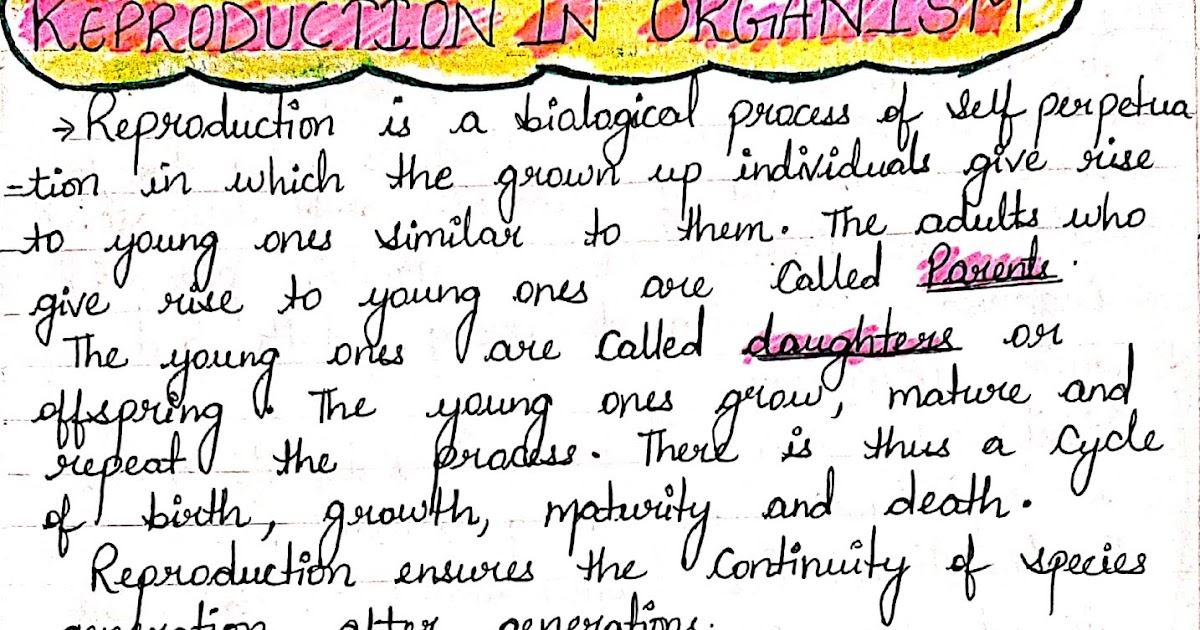 REPRODUCTION IN ORGANISM
→ Reproduction is a biological process of self perpetua
=tion in which the grown up individuals give rise
to young ones similar to them. The adults who
give rise to young ones are called Parents.
The young ones are called daughters or
offspring. The young ones grow, mature and
repeat the process. There is thus a cycle
of birth, growth, maturity and death.
Reproduction ensures the continuity of species
generation after generations.